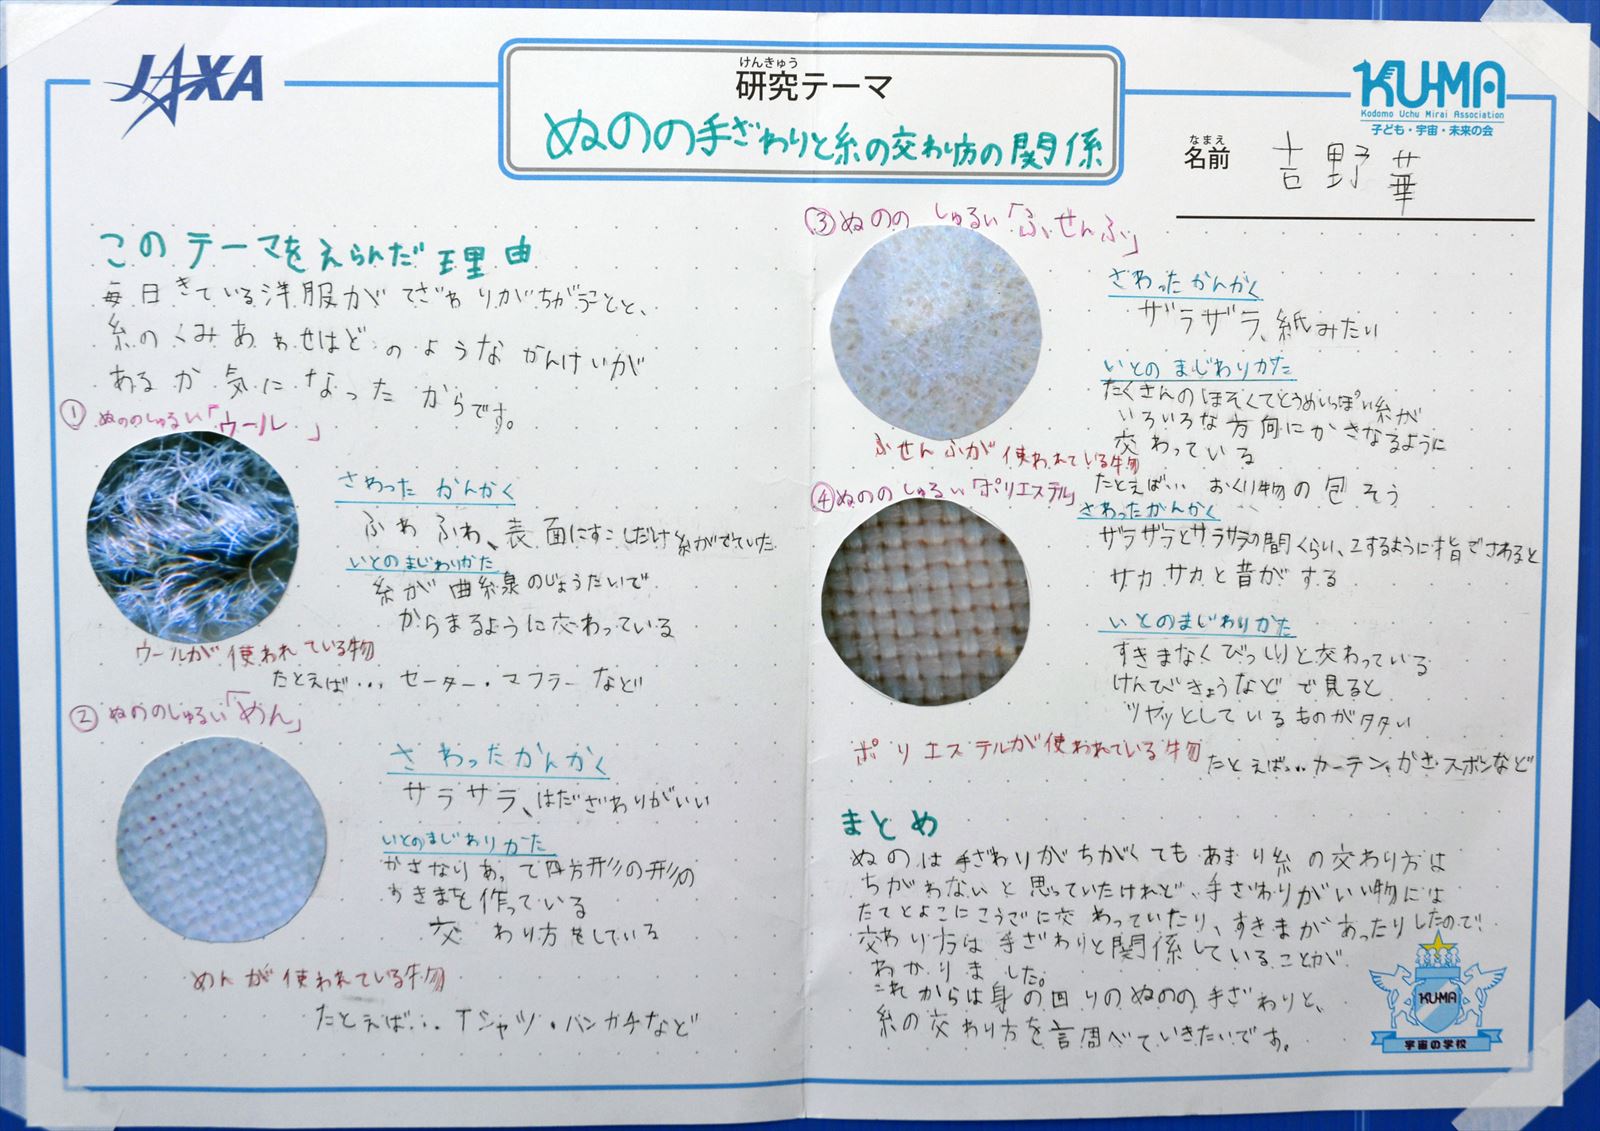 JAXA
けんきゅう
研究テーマ
ぬのの手ざわりと糸の交わり方の関係
KU-MA
Kodomo Uchu Mirai Association
子ども・宇宙・未来の会
なまえ
名前 吉野華
このテーマをえらんだ理由
毎日きている洋服がてざわりがちがうことと、
糸のくみあわせはどのようなかんけいが
あるか気になったからです。
①ぬののしゅるい「ウール」
さわったかんかく
ふわふわ、表面にすこしだけ糸がでていた
いとのまじわりかた
糸が曲線のじょうたいで
からまるように交わっている
ウールが使われている物
たとえば... セーター・マフラーなど
②ぬののしゅるい「めん」
さわったかんかく
サラサラ、はだざわりがいい
いとのまじわりかた
かさなりあって四方形の形の
すきまを作っている
交わり方をしている
めんが使われている物
たとえば... Tシャツ・ハンカチなど
③ぬののしゅるい「ふせんふ」
さわったかんかく
ザラザラ、紙みたい
いとのまじわりかた
たくさんのほそくてとうめいっぽい糸が
いろいろな方向にかさなるように
交わっている
ふせんふが使われている物
たとえば... おくり物の包そう
④ぬののしゅるい「ポリエステル」
さわったかんかく
ザラザラとサラサラの間くらい、こするように指でさわると
サカサカと音がする
いとのまじわりかた
すきまなくびっしりと交わっている
けんびきょうなどで見ると
ツヤッとしているものがタタい
ポリエステルが使われている物
たとえば... カーテン・かさ・ズボンなど
まとめ
ぬのは手ざわりがちがくてもあまり糸の交わり方は
ちがわないと思っていたけれど、手ざわりがいい物には
たてとよこにこうごに交わっていたり、すきまがあったりしたので!
交わり方は手ざわりと関係していることが
わかりました。
これからは身の回りのぬのの手ざわりと、
糸の交わり方を調べていきたいです。
KU-MA
宇宙の学校